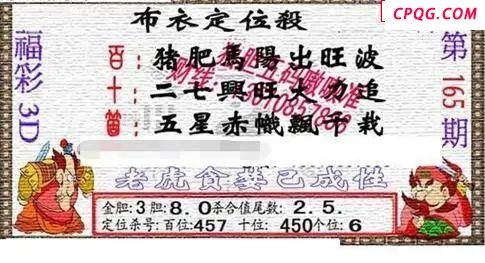 CPQG.COM
布衣定位殺
福彩3D
第165期
百：豬肥馬陽出旺波
十：二七興旺大力追
個：五星赤幟飄千栽
老虎貪婪已成性
金胆:3胆:8.0杀合值尾数:2.5.
定位杀号:百位:457 十位:450个位:6